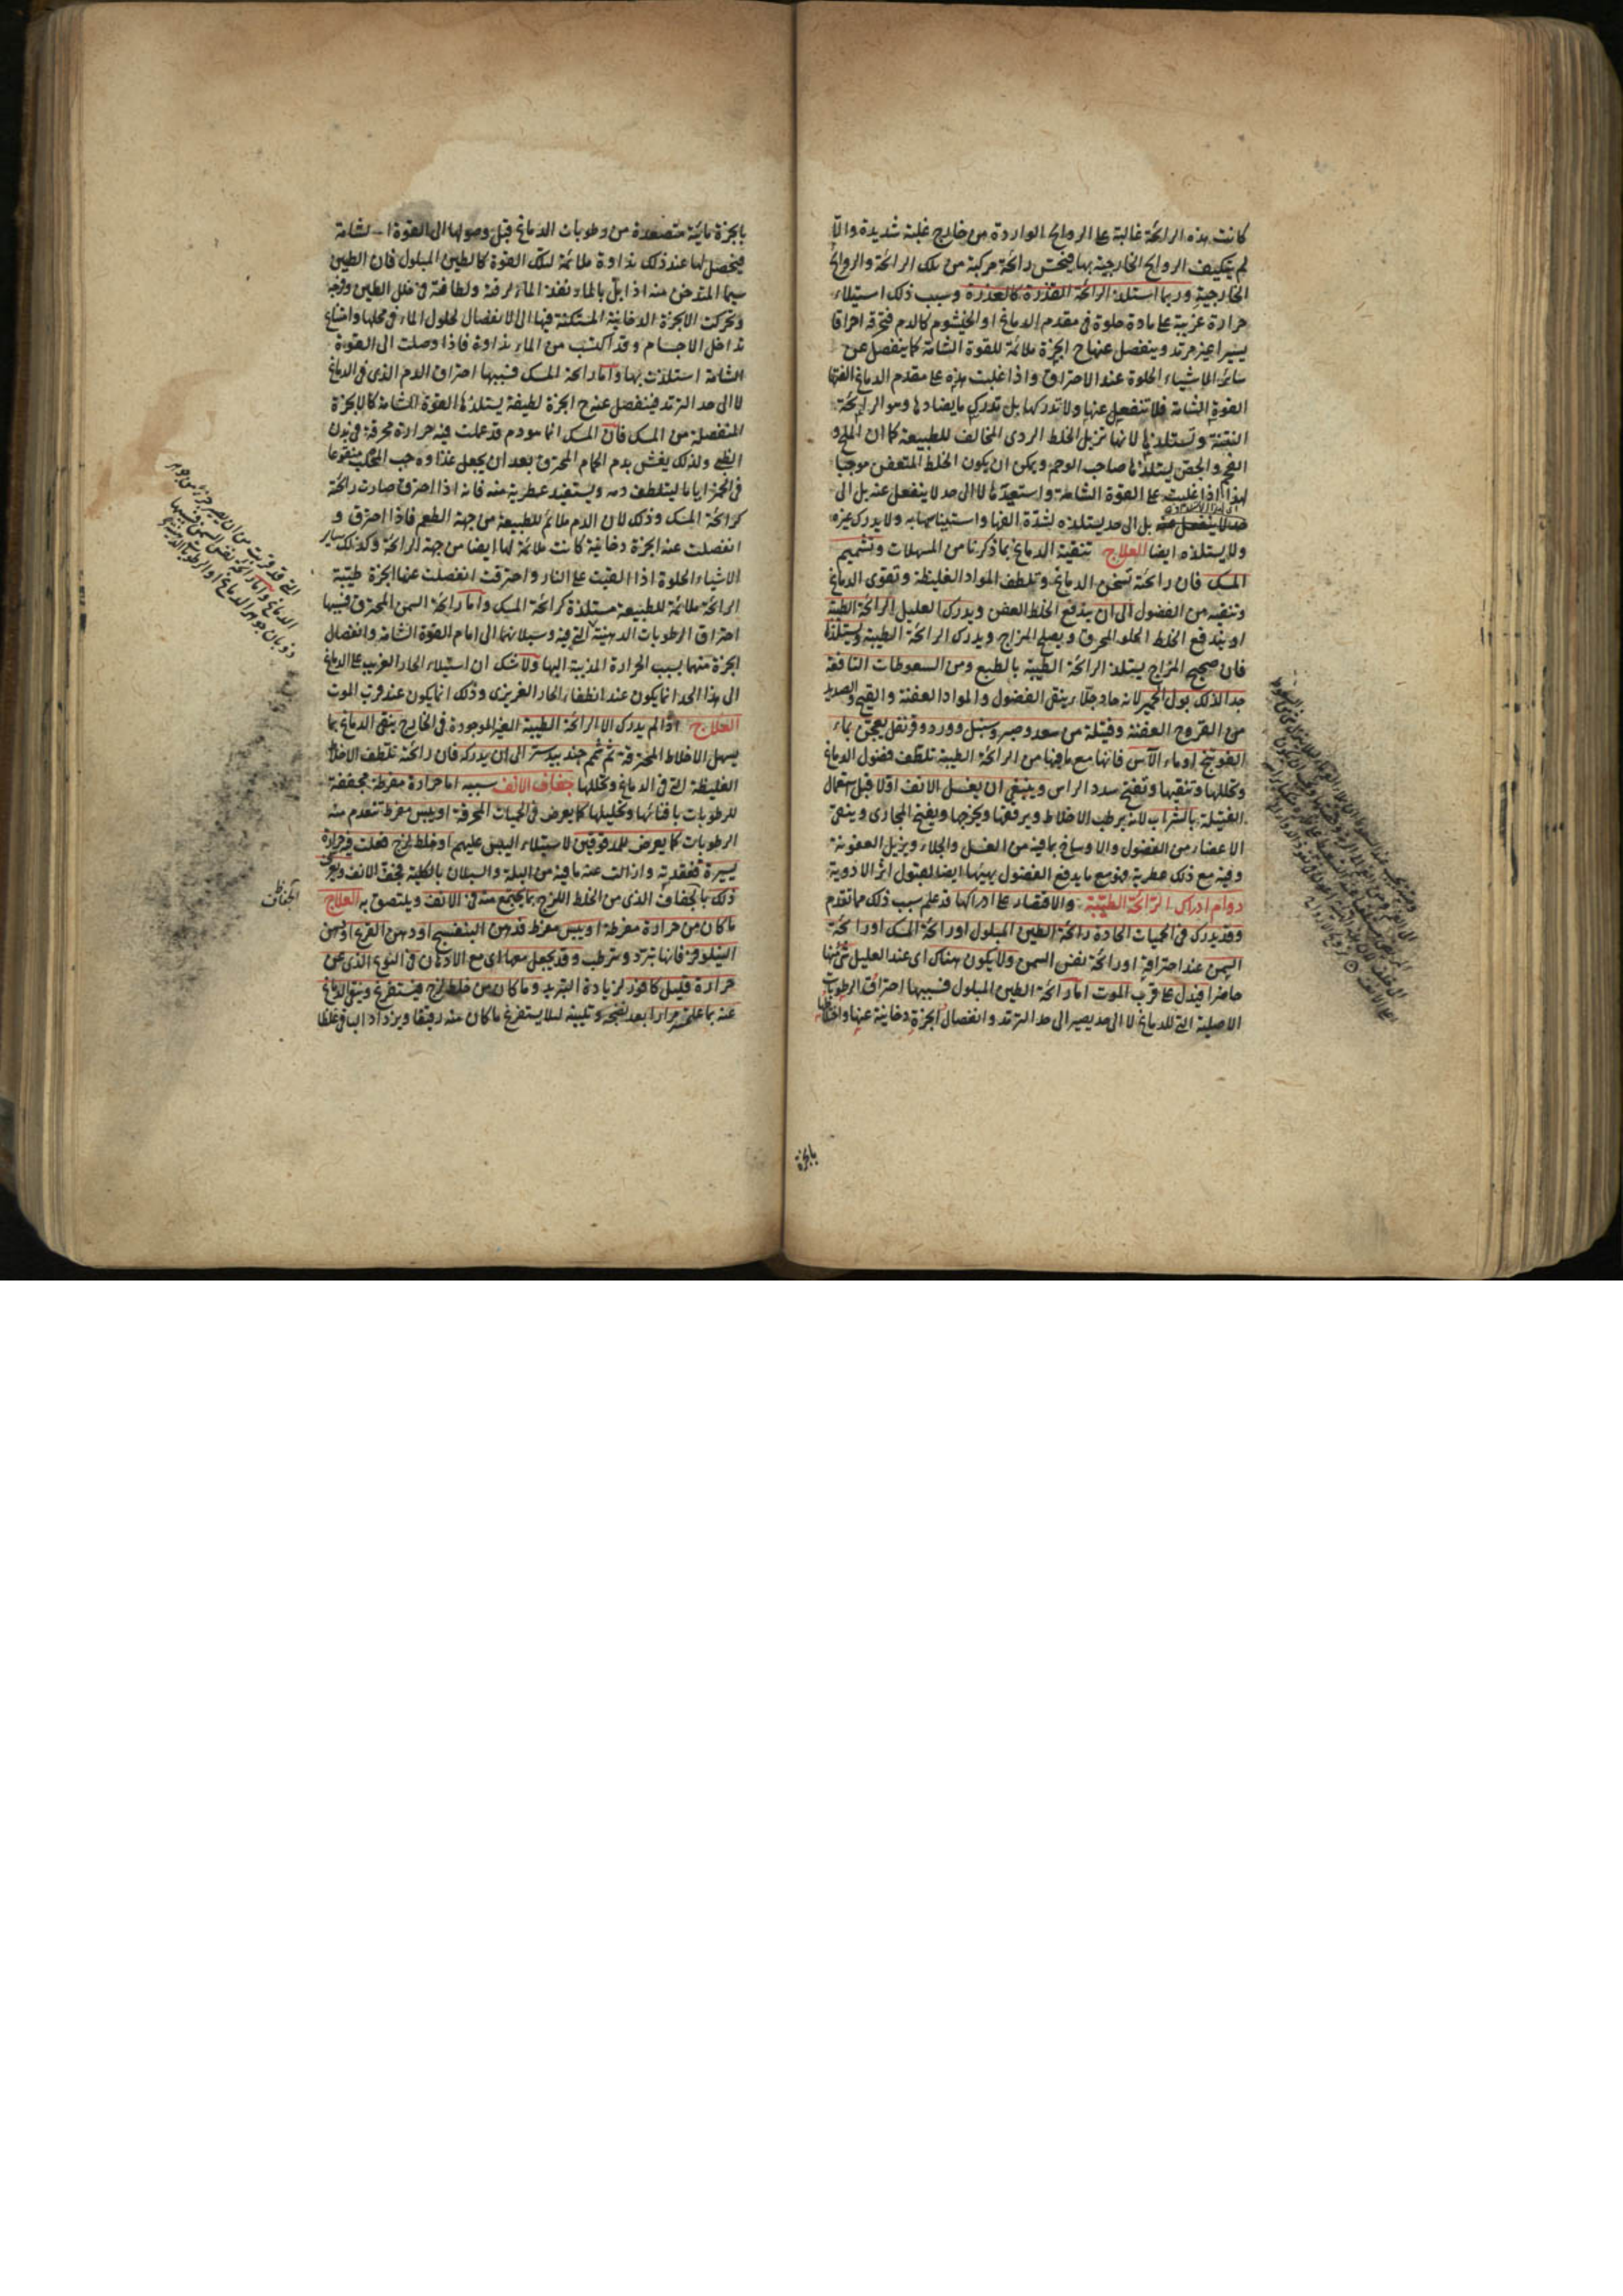 كانت هذه الرائحة غالبة على الروايح الواردة من خارج غلبة شديدة والا
لم يتكيف الروايح الخارجية بها فيحس رائحة مركبة من تلك الرائحة والروايح
الخارجية وربما استلذ الرائحة القذرة كالعذرة وسبب ذلك استيلاء
حرارة غريبة على مادة حلوة في مقدم الدماغ او الخيشوم كالدم فتحرقه احراقا
يسيرا غير مرمد وينفصل عنها ح ابخرة ملائمة للقوة الشامة كما ينفصل عن
سائر الاشياء الحلوة عند الاحتراق واذا غلبت هذه على مقدم الدماغ الفتها
القوة الشامة فلا تنفعل عنها ولا تدركها بل تدرك ما يضادها وهو الرائحة
النتنة وتستلذها لانها تزيل الخلط الردى المخالف للطبيعة كما ان الملح و
الفحم والجص يستلذها صاحب الوحم ويمكن ان يكون الخلط المتعفن موجبا
لهذا اذا غلبت على القوة الشامة واستعدتها لا الى حد لا ينفعل عنه بل الى
حد لا ينفعل عنه بل الى حد يستلذه لشدة الفها واستيناسها به ولا يدرك غيره
ولا يستلذه ايضا العلاج تنقية الدماغ بما ذكرنا من المسهلات وتشميم
المسك فان رائحته تسخن الدماغ وتلطف المواد الغليظة وتقوى الدماغ
وتنقيه من الفضول الى ان يندفع الخلط العفن ويدرك العليل الرائحة الطيبة
او يندفع الخلط الحلو المحرق ويصلح المزاج ويدرك الرائحة الطيبة ويستلذها
فان صحيح المزاج يستلذ الرائحة الطيبة بالطبع ومن السعوطات النافعة
جدا لذلك بول الحمير لانه حاد جلاء ينقى الفضول والمواد العفنة والقيح والصديد
من القروح العفنة وفتيلة من سعد وصبر وسنبل وورد وقرنفل يعجن بماء
الفوتنج او ماء الآس فانها مع ما فيها من الرائحة الطيبة تلطف فضول الدماغ
وتحللها وتنقيها وتفتح سدد الراس وينبغى ان يغسل الانف اولا قبل استعمال
الفتيلة بالشراب لانه يرطب الاخلاط ويرققها ويخرجها ويفتح المجارى وينقى
الاعضاء من الفضول والاوساخ بما فيه من الغسل والجلاء ويزيل العفونة
وفيه مع ذلك عطرية فهو مع ما يدفع الفضول يهيئها ايضا لقبول اثر الادوية
دوام ادراك الرائحة الطيبة والاقتصار على ادراكها قد علم سبب ذلك مما تقدم
وقد يدرك في الحميات الحادة رائحة الطين المبلول او رائحة المسك او رائحة
السمن عند احتراقه او رائحة نفس السمن ولا يكون هناك اى عند العليل شئ منها
حاضرا فيدل على قرب الموت اما رائحة الطين المبلول فسببها احتراق الرطوبات
الاصلية التي للدماغ لا الى حد يصير الى حد الترمد وانفصال ابخرة دخانية عنها واختلاطها
بابخرة
بابخرة مائية متصعدة من رطوبات الدماغ قبل وصولها الى القوة الشامة
فيحصل لها عند ذلك نداوة ملائمة لتلك القوة كالطين المبلول فان الطين
سيما المتدخن منه اذا ابل بالماء نفذ الماء لرقته ولطافته في خلل الطين وفرجه
وتحركت الابخرة الدخانية المستكنة فيها الى الانفصال لحلول الماء في محلها وامتناع
تداخل الاجسام وقد اكتسب من الماء نداوة فاذا وصلت الى القوة
الشامة استلذت بها واما رائحة المسك فسببها احتراق الدم الذى في الدماغ
لا الى حد الترمد فينفصل عنه ح ابخرة لطيفة يستلذها القوة الشامة كالابخرة
المنفصلة من المسك فان المسك انما هو دم قد عملت فيه حرارة محرقة في بدن
الظبى ولذلك يغش بدم الحمام المحترق بعد ان يجعل غذاؤه حب المحلب منقوعا
في الخمر اياما ليتلطف دمه ويستفيد عطرية منه فانه اذا احترق صارت رائحته
كرائحة المسك وذلك لان الدم ملائم للطبيعة من جهة الطعم فاذا احترق و
انفصلت عنه ابخرة دخانية كانت ملائمة لها ايضا من جهة الرائحة وكذلك ساير
الاشياء الحلوة اذا القيت على النار واحترقت انفصلت عنها ابخرة طيبة
الرائحة ملائمة للطبيعة مستلذة كرائحة المسك واما رائحة السمن المحترق فسببها
احتراق الرطوبات الدهنية التي فيه وسيلانهما الى امام القوة الشامة وانفصال
ابخرة منهما بسبب الحرارة المذيبة اليها ولا شك ان استيلاء الحار الغريب على الدماغ
الى هذا الحد انما يكون عند انطفاء الحار الغريزى وذلك انما يكون عند قرب الموت
العلاج اذا لم يدرك الا الرائحة الطيبة الغير الموجودة في الخارج ينقى الدماغ بما
يسهل الاخلاط المحترقة ثم يشم جند بيدستر الى ان يدركه فان رائحته تلطف الاخلاط
الغليظة التي في الدماغ وتحللها جفاف الانف سببه اما حرارة مفرطة مجففة
للرطوبات بافنائها وتحليلها كما يعرض في الحميات المحرقة او يبس مفرط تنعدم منه
الرطوبات كما يعرض للمدقوقين لاستيلاء اليبس عليهم او خلط لزج فعلت فيه حرارة
يسيرة فعقدته وازالت عنه ما فيه من البلة والسيلان بالكلية فيجف الانف ويعرف
ذلك بالجفاف الذى من الخلط اللزج بما يجتمع منه في الانف ويلتصق به العلاج
ما كان من حرارة مفرطة او يبس مفرط فدهن البنفسج او دهن القرع او دهن
النيلوفر فانها تبرد وترطب وقد يجعل معها اى مع الادهان في النوع الذى عن
حرارة قليل كافور لزيادة التبريد وما كان من خلط لزج فيستفرغ وينقى الدماغ
عنه بما علمته مرارا بعد نضجه وتليينه لئلا يستفرغ ما كان منه رقيقا ويزداد الباقي غلظا
التي قد قربت من ان يصير جزء من جوهر
الدماغ واما رائحة نفس السمن فسببها
ذوبان جوهر الدماغ او الرطوبات الدهنية